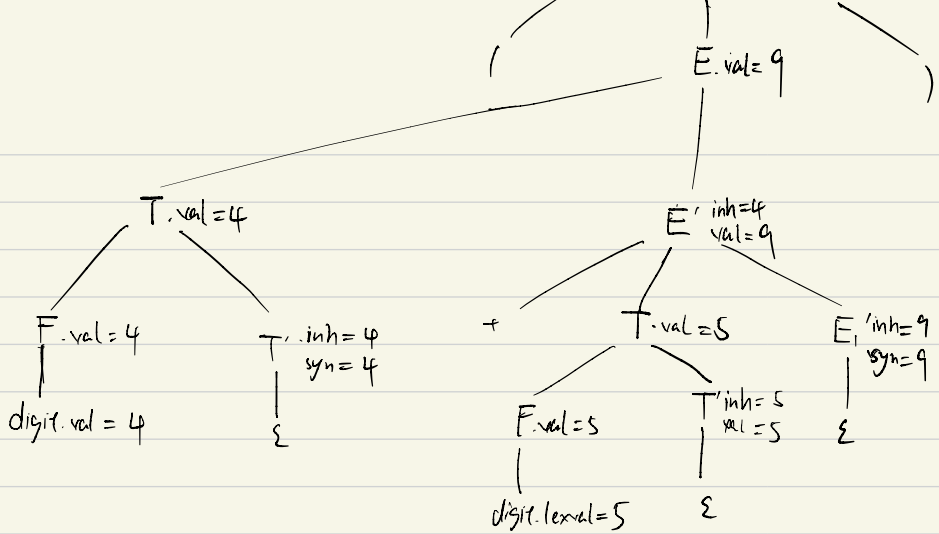 ( E.val=9 )
T.val=4 E' inh=4
val=9
F.val=4 T'.inh=4 + T.val=5 E₁'inh=9
syn=4 syn=9
digit.val=4 ε F.val=5 T'inh=5 ε
val=5
digit.lexval=5 ε